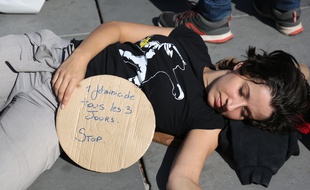 1 féminicide
tous les 3
Jours.
Stop.